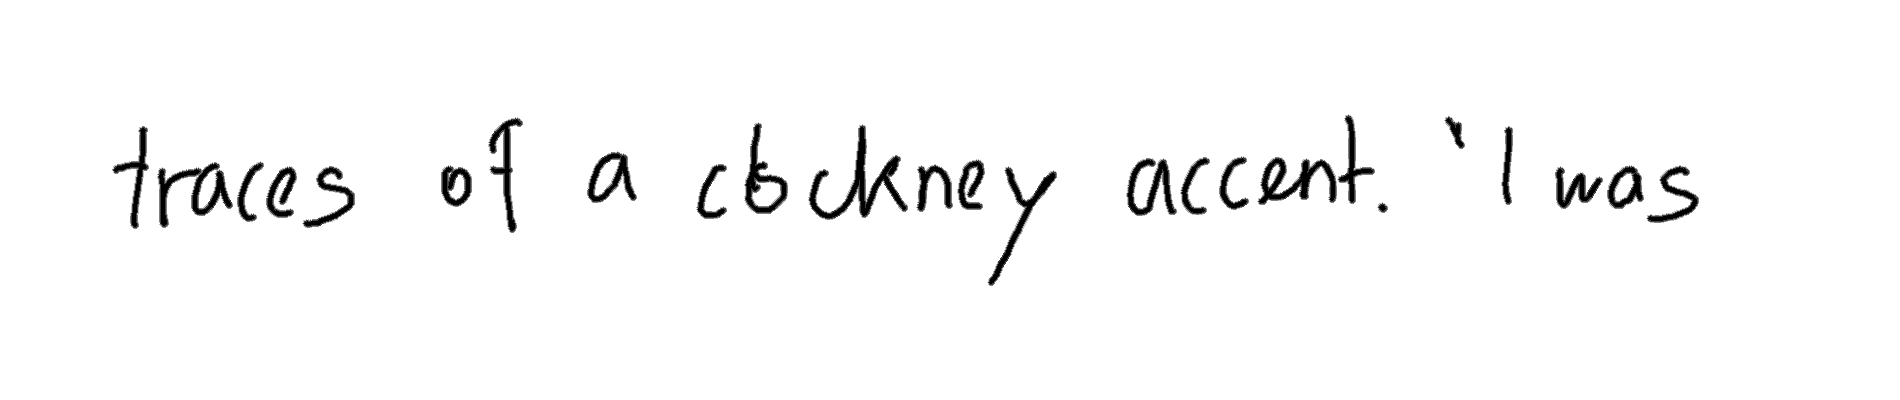 traces of a cockney accent. 'I was